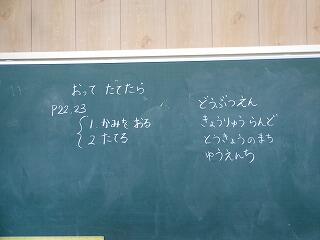 おって だてたら
P22,23
1. かみを おる
2. たてる
どうぶつえん
きょうりゅう らんど
とうきょうのまち
ゆうえんち